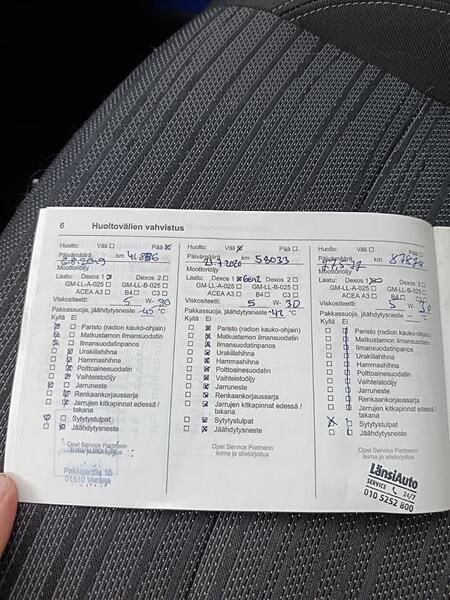 6 Huoltovälien vahvistus
Huolto: Väli Pää
Päivämäärä km 41886
6.8.2019
Moottoriöljy
Laatu: Dexos 1 Dexos 2
GM-LL-A-025 GM-LL-B-025
ACEA A3 B4 C3
Viskositeetti: 5 W- 30
Pakkassuoja, jäähdytysneste -45 °C
Kyllä Ei
Paristo (radion kauko-ohjain)
Matkustamon ilmansuodatin
Ilmansuodatinpanos
Urakiilahihna
Hammashihna
Polttoainesuodatin
Vaihteistoöljy
Jarruneste
Renkaankorjaussarja
Jarrujen kitkapinnat edessä /
takana
Sytytystulpat
Jäähdytysneste
Opel Service Partnerin
leima ja allekirjoitus
Pakkalantie 15
01510 Vantaa
Huolto: Väli Pää
Päivämäärä km 58033
23.7.2020
Moottoriöljy
Laatu: Dexos 1 Gen2 Dexos 2
GM-LL-A-025 GM-LL-B-025
ACEA A3 B4 C3
Viskositeetti: 5 W- 30
Pakkassuoja, jäähdytysneste -42 °C
Kyllä Ei
Paristo (radion kauko-ohjain)
Matkustamon ilmansuodatin
Ilmansuodatinpanos
Urakiilahihna
Hammashihna
Polttoainesuodatin
Vaihteistoöljy
Jarruneste
Renkaankorjaussarja
Jarrujen kitkapinnat edessä /
takana
Sytytystulpat
Jäähdytysneste
Opel Service Partnerin
leima ja allekirjoitus
Huolto: Väli Pää
Päivämäärä km
Moottoriöljy
Laatu: Dexos 1 Dexos 2
GM-LL-A-025 GM-LL-B-025
ACEA A3 B4
Viskositeetti: 5 W-
Pakkassuoja, jäähdytysneste
Kyllä Ei
Paristo (radion kauko-ohjain)
Matkustamon ilmansuodatin
Ilmansuodatinpanos
Urakiilahihna
Hammashihna
Polttoainesuodatin
Vaihteistoöljy
Jarruneste
Renkaankorjaussarja
Jarrujen kitkapinnat edessä /
takana
Sytytystulpat
Jäähdytysneste
Opel Service Partnerin
leima ja allekirjoitus
LänsiAuto
SERVICE 24/7
010 5252 800